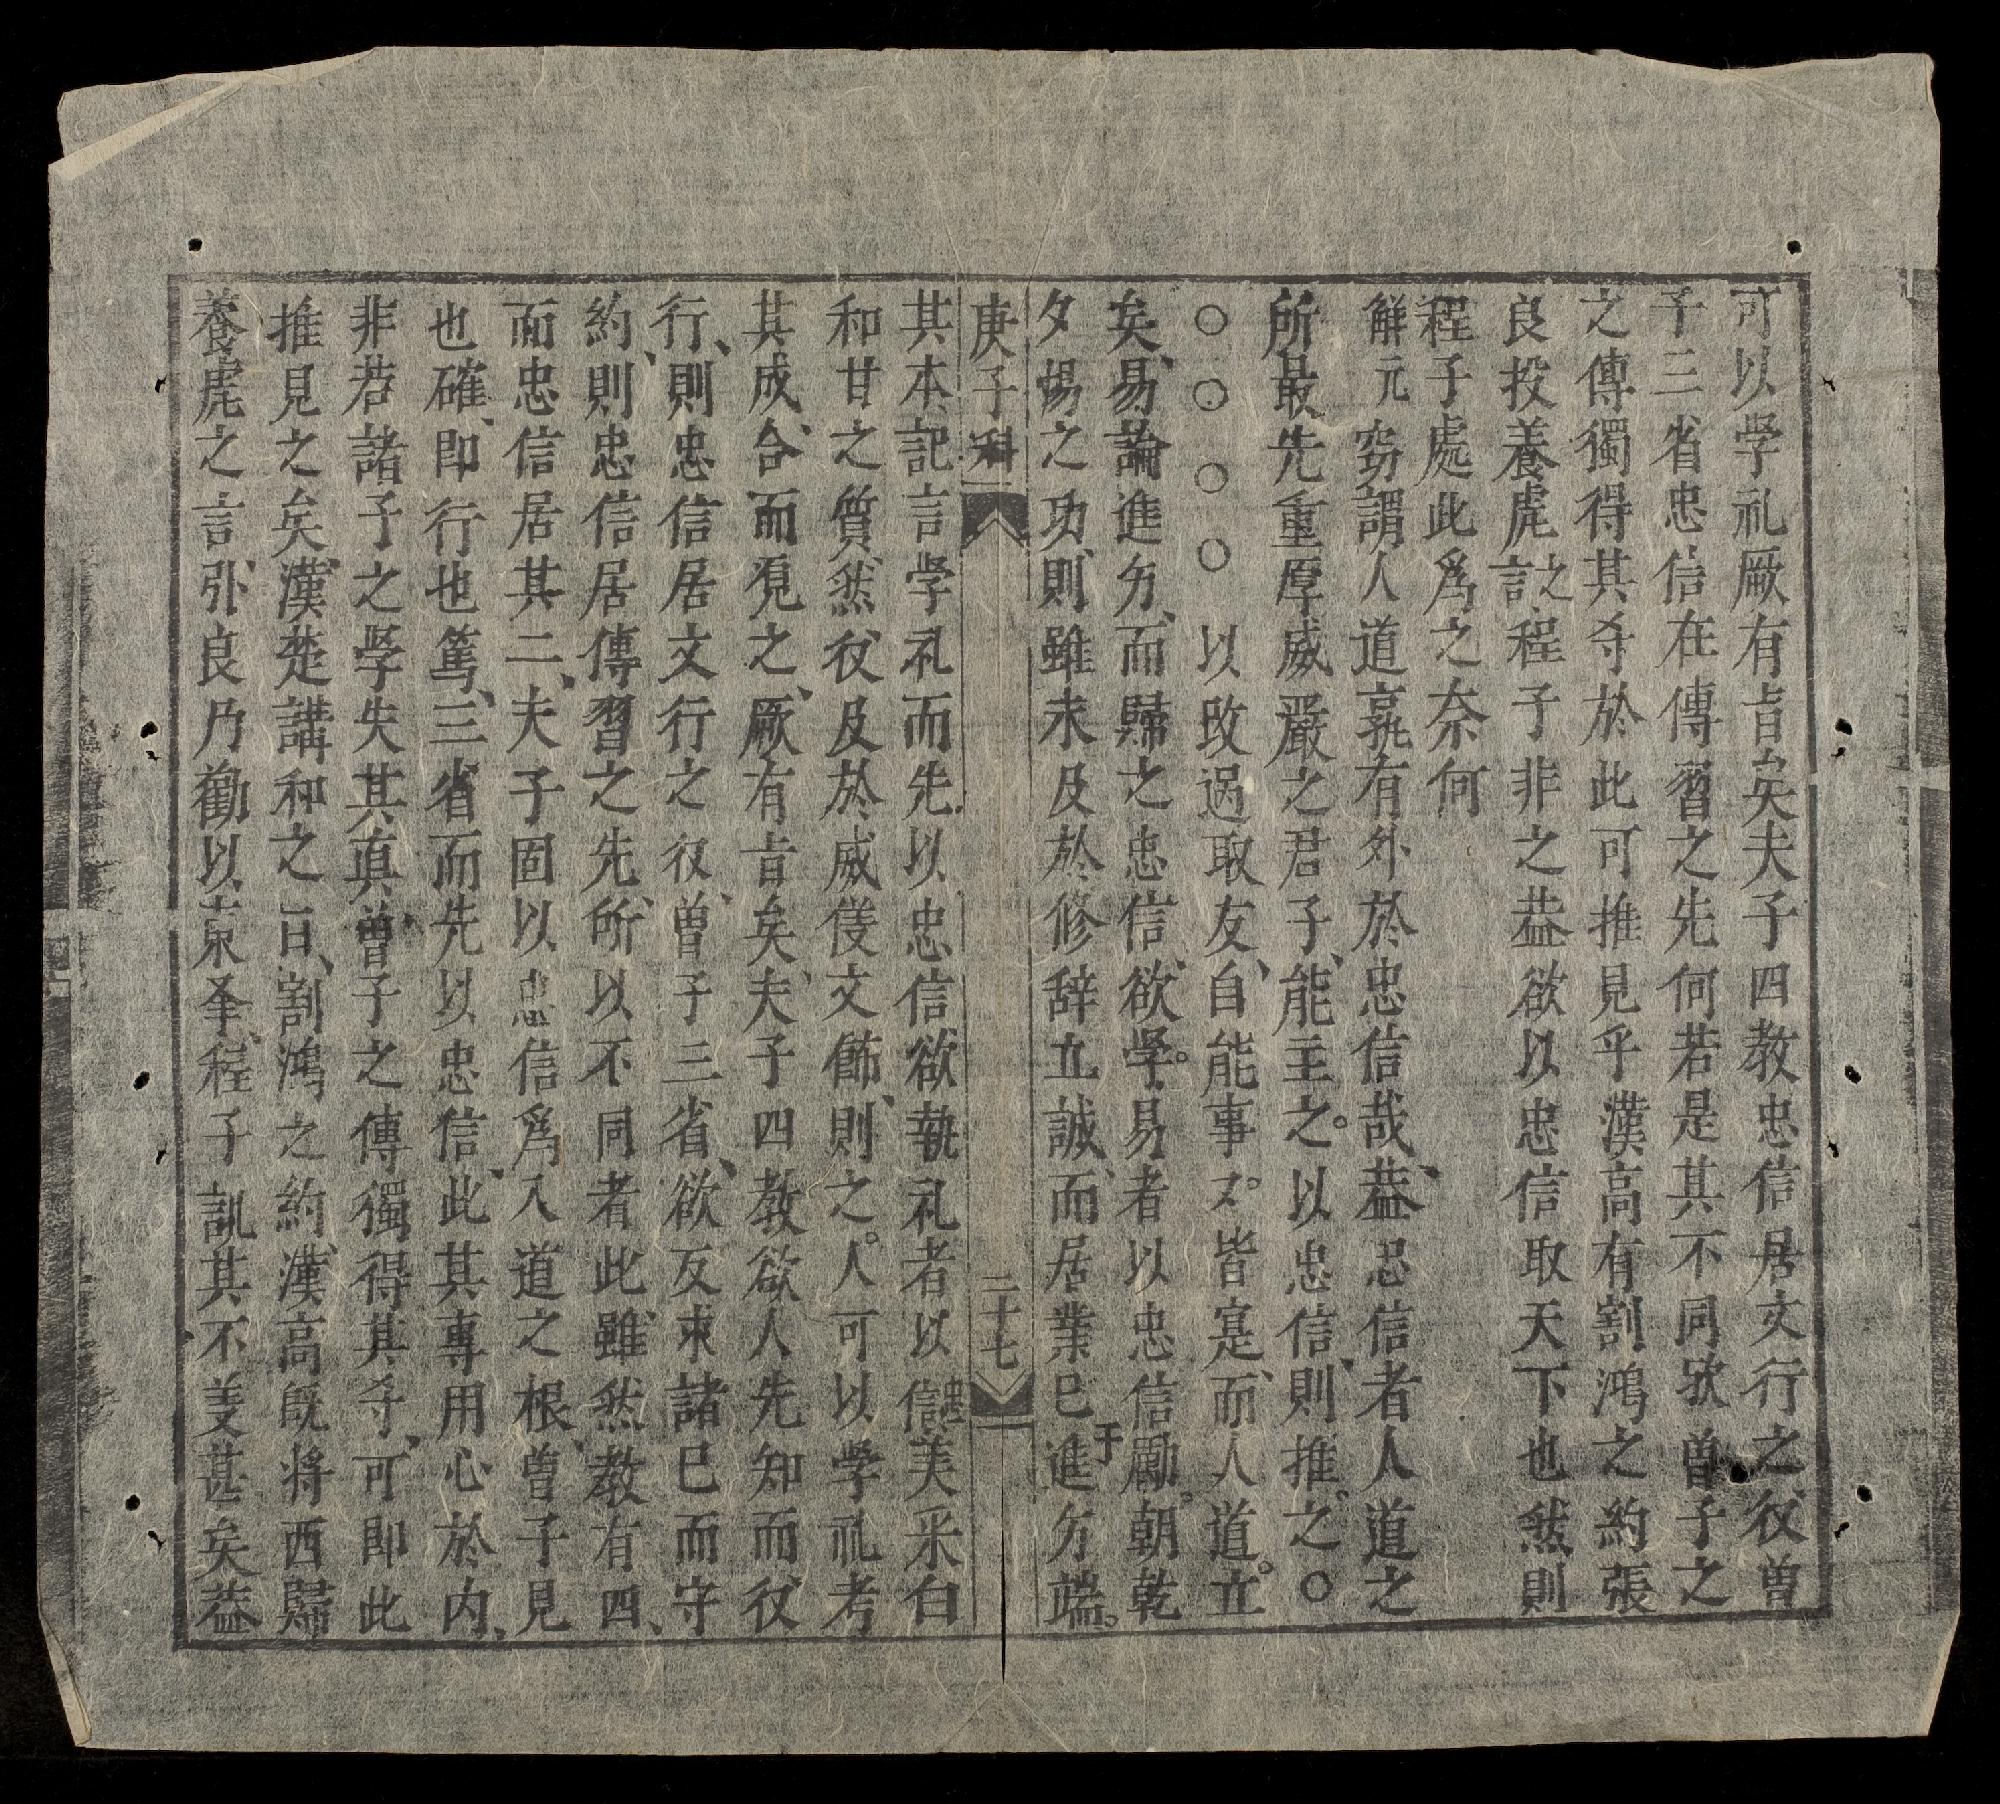 可以学礼厥有旨矣夫子四教忠信居文行之後曽
子三省忠信在傳習之先何若是其不同欤曽子之
之傳獨得其夲於此可推見乎漢高有割鴻之約張
良投養虎之言程子非之葢欲以忠信取天下也然則
程子處此爲之奈何
觧元 窃謂人道孰有外於忠信哉葢忠信者人道之
所最先重厚威嚴之君子能主之以忠信則推之○
○○○○以改過取友自能事〻皆寔而人道立
矣易論進𠫅而歸之忠信欲學易者以忠信勵朝乾
夕惕之功則雖未及於修辞立誠而居業已于進𠫅端
庚子科 二十七
其本記言学礼而先以忠信欲執礼者以忠信美采白
和甘之質然後及於威儀文飾則之人可以学礼考
其成合而覌之厥有旨矣夫子四教欲人先知而後
行則忠信居文行之後曽子三省欲反求諸已而守
約則忠信居傳習之先所以不同者此雖然教有四
而忠信居其二夫子固以忠信爲入道之根曽子見
也確即行也篤三省而先以忠信此其專用心於内
非若諸子之學失其真曽子之傳獨得其夲可即此
推見之矣漢楚講和之日割鴻之約漢高既將西歸
養虎之言張良乃勸以東夅程子訊其不美甚矣葢